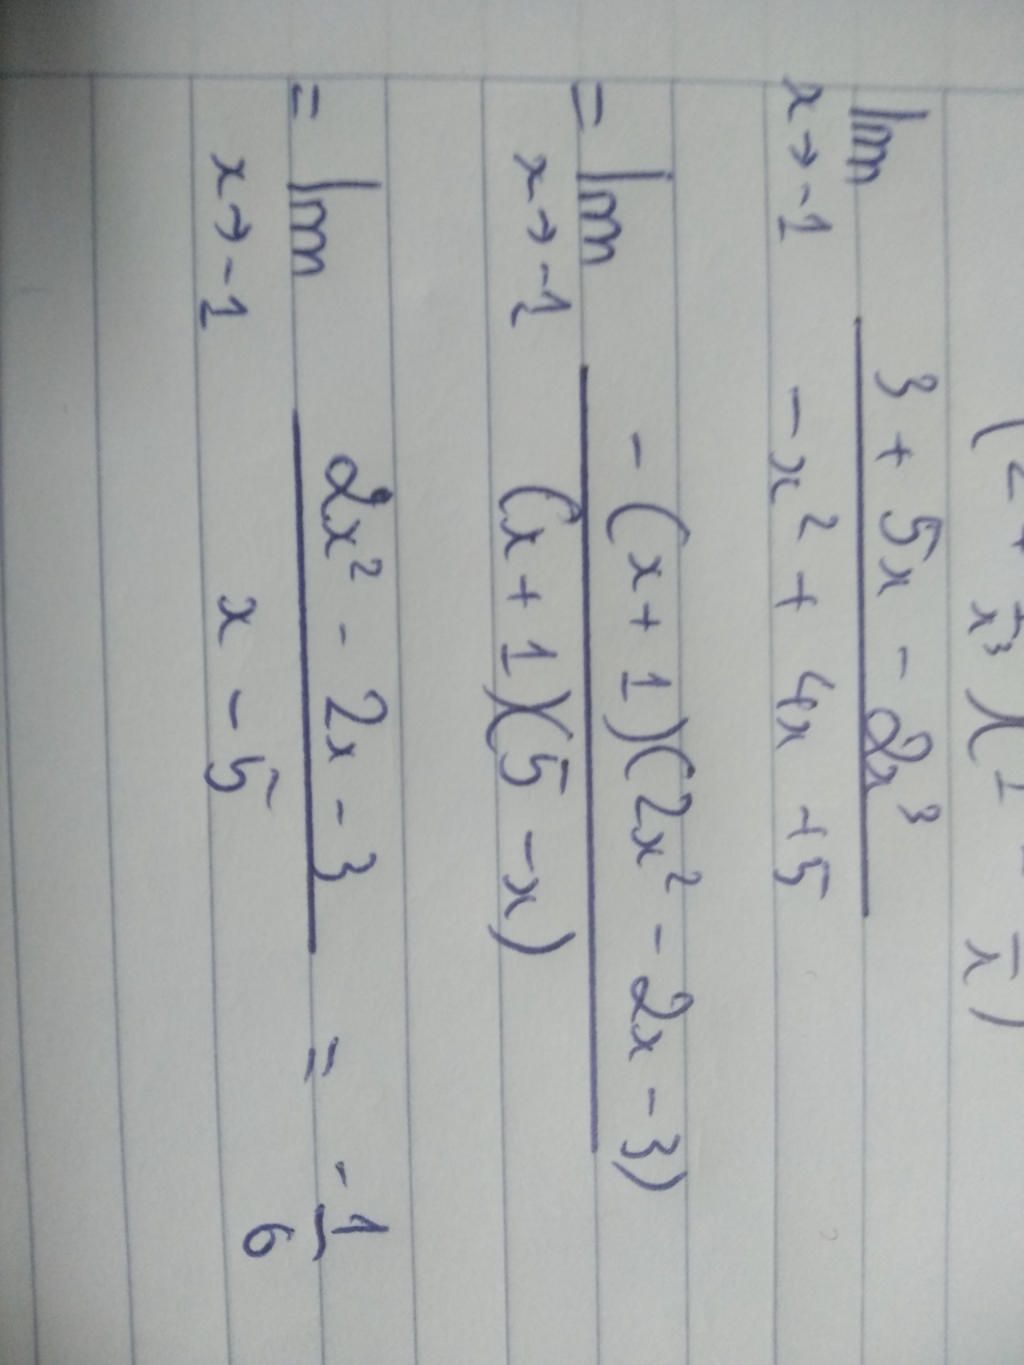 (2 + / x³)(1 - / x)
lim x→-1 (3 + 5x - 2x³) / (-x² + 4x + 5)
= lim x→-1 (-(x + 1)(2x² - 2x - 3)) / ((x + 1)(5 - x))
= lim x→-1 (2x² - 2x - 3) / (x - 5) = -1/6